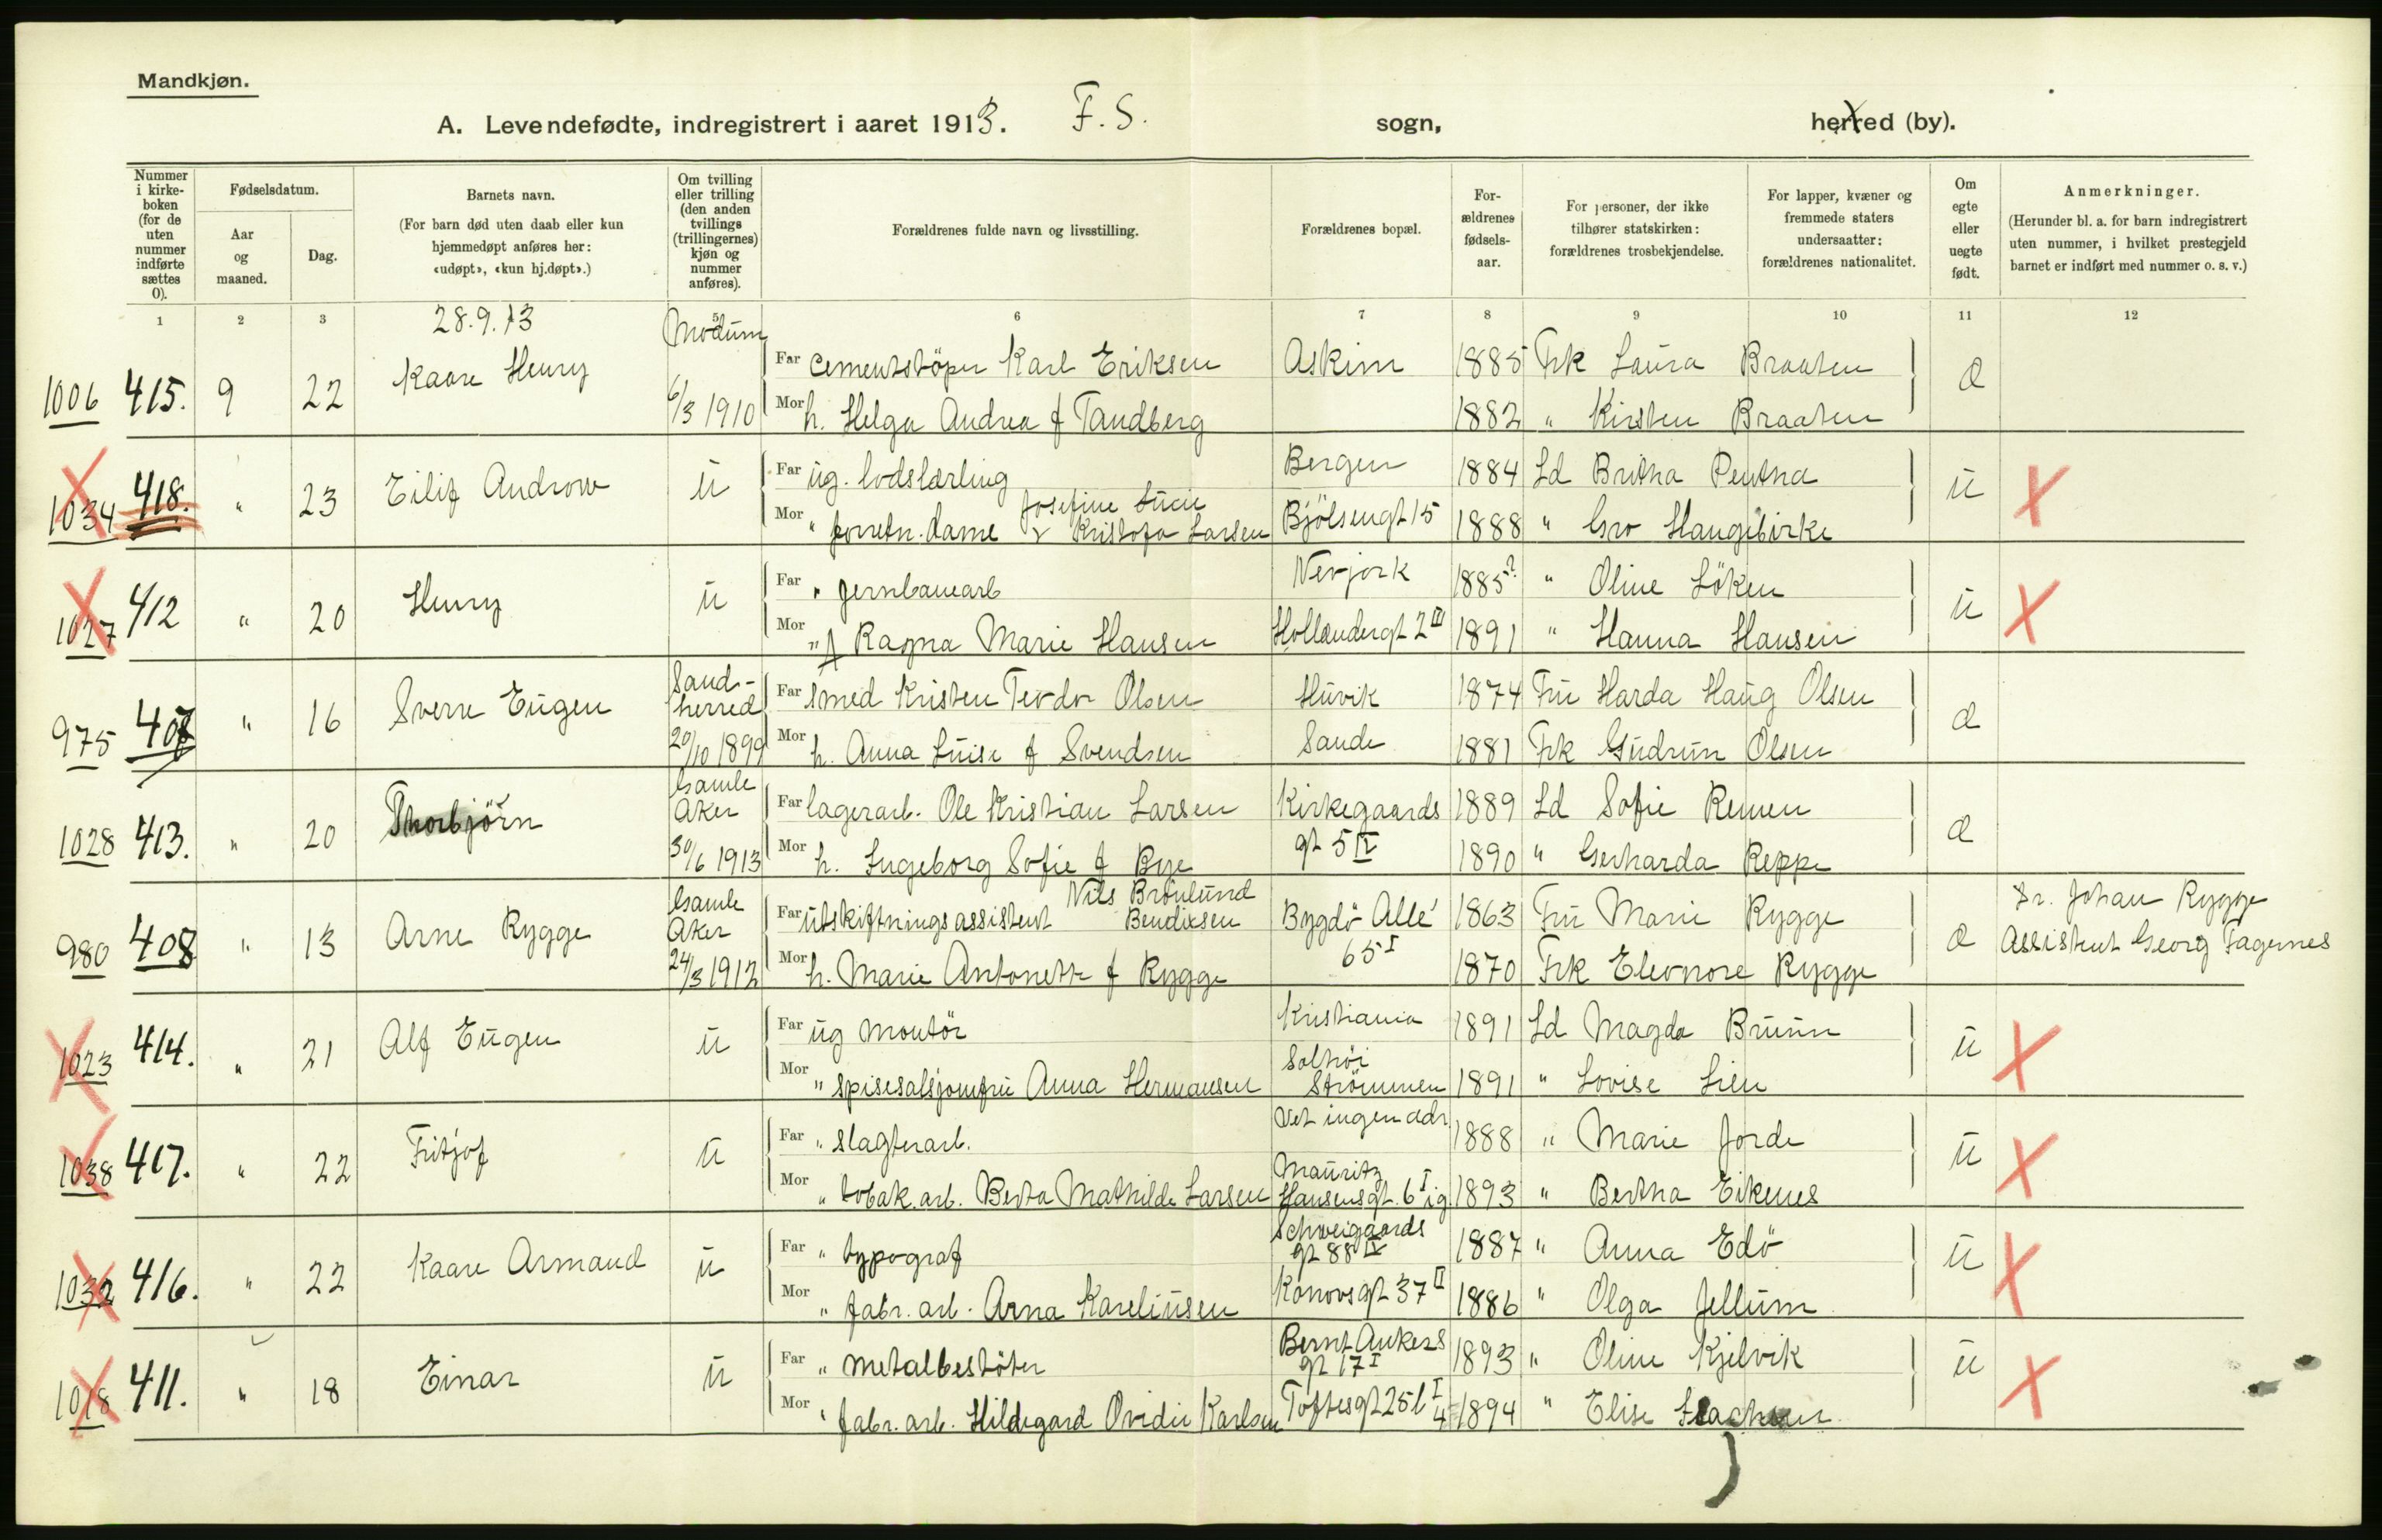 Mandkjøn.
A. Levendefødte, indregistrert i aaret 1913. F. S. sogn, herred (by).
Nummer i kirke-boken (for de uten nummer indførte sættes 0).
Fødselsdatum.
Aar og maaned.
Dag.
Barnets navn.
(For barn død uten daab eller kun hjemmedøpt anføres her: «udøpt», «kun hj.døpt».)
Om tvilling eller trilling (den anden tvillings (trillingernes) kjøn og nummer anføres).
Forældrenes fulde navn og livsstilling.
Forældrenes bopæl.
For-ældrenes fødsels-aar.
For personer, der ikke tilhører statskirken: forældrenes trosbekjendelse.
For lapper, kvæner og fremmede staters undersaatter: forældrenes nationalitet.
Om egte eller uegte født.
Anmerkninger.
(Herunder bl. a. for barn indregistrert uten nummer, i hvilket prestegjeld barnet er indført med nummer o. s. v.)
1 2 3 5 6 7 8 9 10 11 12
28.9.13
Modum
1006 415. 9 22 Kaare Henry 6/3 1910
Far cementstöper Karl Eriksen Askim 1885 Frk Laura Braaten
Mor h. Helga Andrea f Tandberg 1882 " Kirsten Braaten
1034 418. " 23 Eilif Androw u
Far ug. lodslærling Bergen 1884 Ld Britha Pentha u
Josefine Lucie
Mor " forretn. dame Kristofa Larsen Bjölsengt 15 1888 " Gro Haugebirke
1027 412 " 20 Henry u
Far " jernbanearb Nevjork 1885? " Oline Löken u
Mor " f Ragna Marie Hansen Hollændergt 2 III 1891 " Hanna Hansen
975 407 " 16 Sverre Eugen Sandherred 20/10 1899
Far smed Kristen Teodor Olsen Huvik 1874 Fru Harda Haug Olsen
Mor h. Anna Luise f Svendsen Sande 1881 Frk Gudrun Olsen
1028 413. " 20 Thorbjörn Gamle Aker 30/6 1913
Far lagerarb. Ole Kristian Larsen Kirkegaards 1889 Ld Sofie Remen
Mor h. Ingeborg Sofie f Bye gt 5 IV 1890 " Gerharda Reppe
980 408 " 13 Arne Rygge Gamle Aker 24/3 1912
Nils Brönlund
Far utskiftningsassistent Bendixsen Bygdö Allé 1863 Fru Marie Rygge Dr. Johan Rygge
65 I Assistent Georg Fagernes
Mor h. Marie Antonette f Rygge 1870 Frk Eleonore Rygge
1023 414. " 21 Alf Eugen u
Far ug montör Kristiania 1891 Ld Magda Bruun u
Solhöi
Mor " spisesalsjomfru Anna Hermansen Strömmen 1891 " Lovise Lien
1038 417. " 22 Fritjof u
Vet ingen adr.
Far " slagterarb. 1888 " Marie Jorde u
Mauritz
Mor " tobak. arb. Berta Mathilde Larsen Hansensgt. 6 I ig. 1893 " Bertha Eikenes
1032 416. " 22 Kaare Armand u
Schweigaards
Far " typograf gt 88 IV 1887 " Anna Edö u
Mor " fabr. arb. Arna Kareliusen Konowsgt 37 II 1886 " Olga Jellum
1018 411. " 18 Einar u
Bernt Ankers
Far " metalbestöter gt 17 I 1893 " Oline Kjelvik u
Mor " fabr. arb. Hildegard Ovidie Karlsen Toftesgt 25 b I 4 1894 " Elise